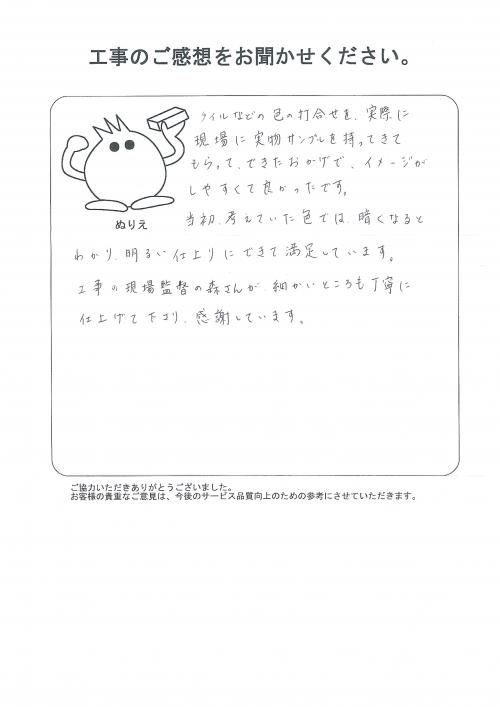 工事のご感想をお聞かせください。
タイルなどの色の打合せを、実際に
現場に実物サンプルを持ってきて
もらって、できたおかげで、イメージが
しやすくて良かったです。
当初、考えていた色では、暗くなると
ぬりえ
わかり、明るい仕上りにできて満足しています。
工事の現場監督の森さんが、細かいところも丁寧に
仕上げて下さり、感謝しています。
ご協力いただきありがとうございました。
お客様の貴重なご意見は、今後のサービス品質向上のための参考にさせていただきます。